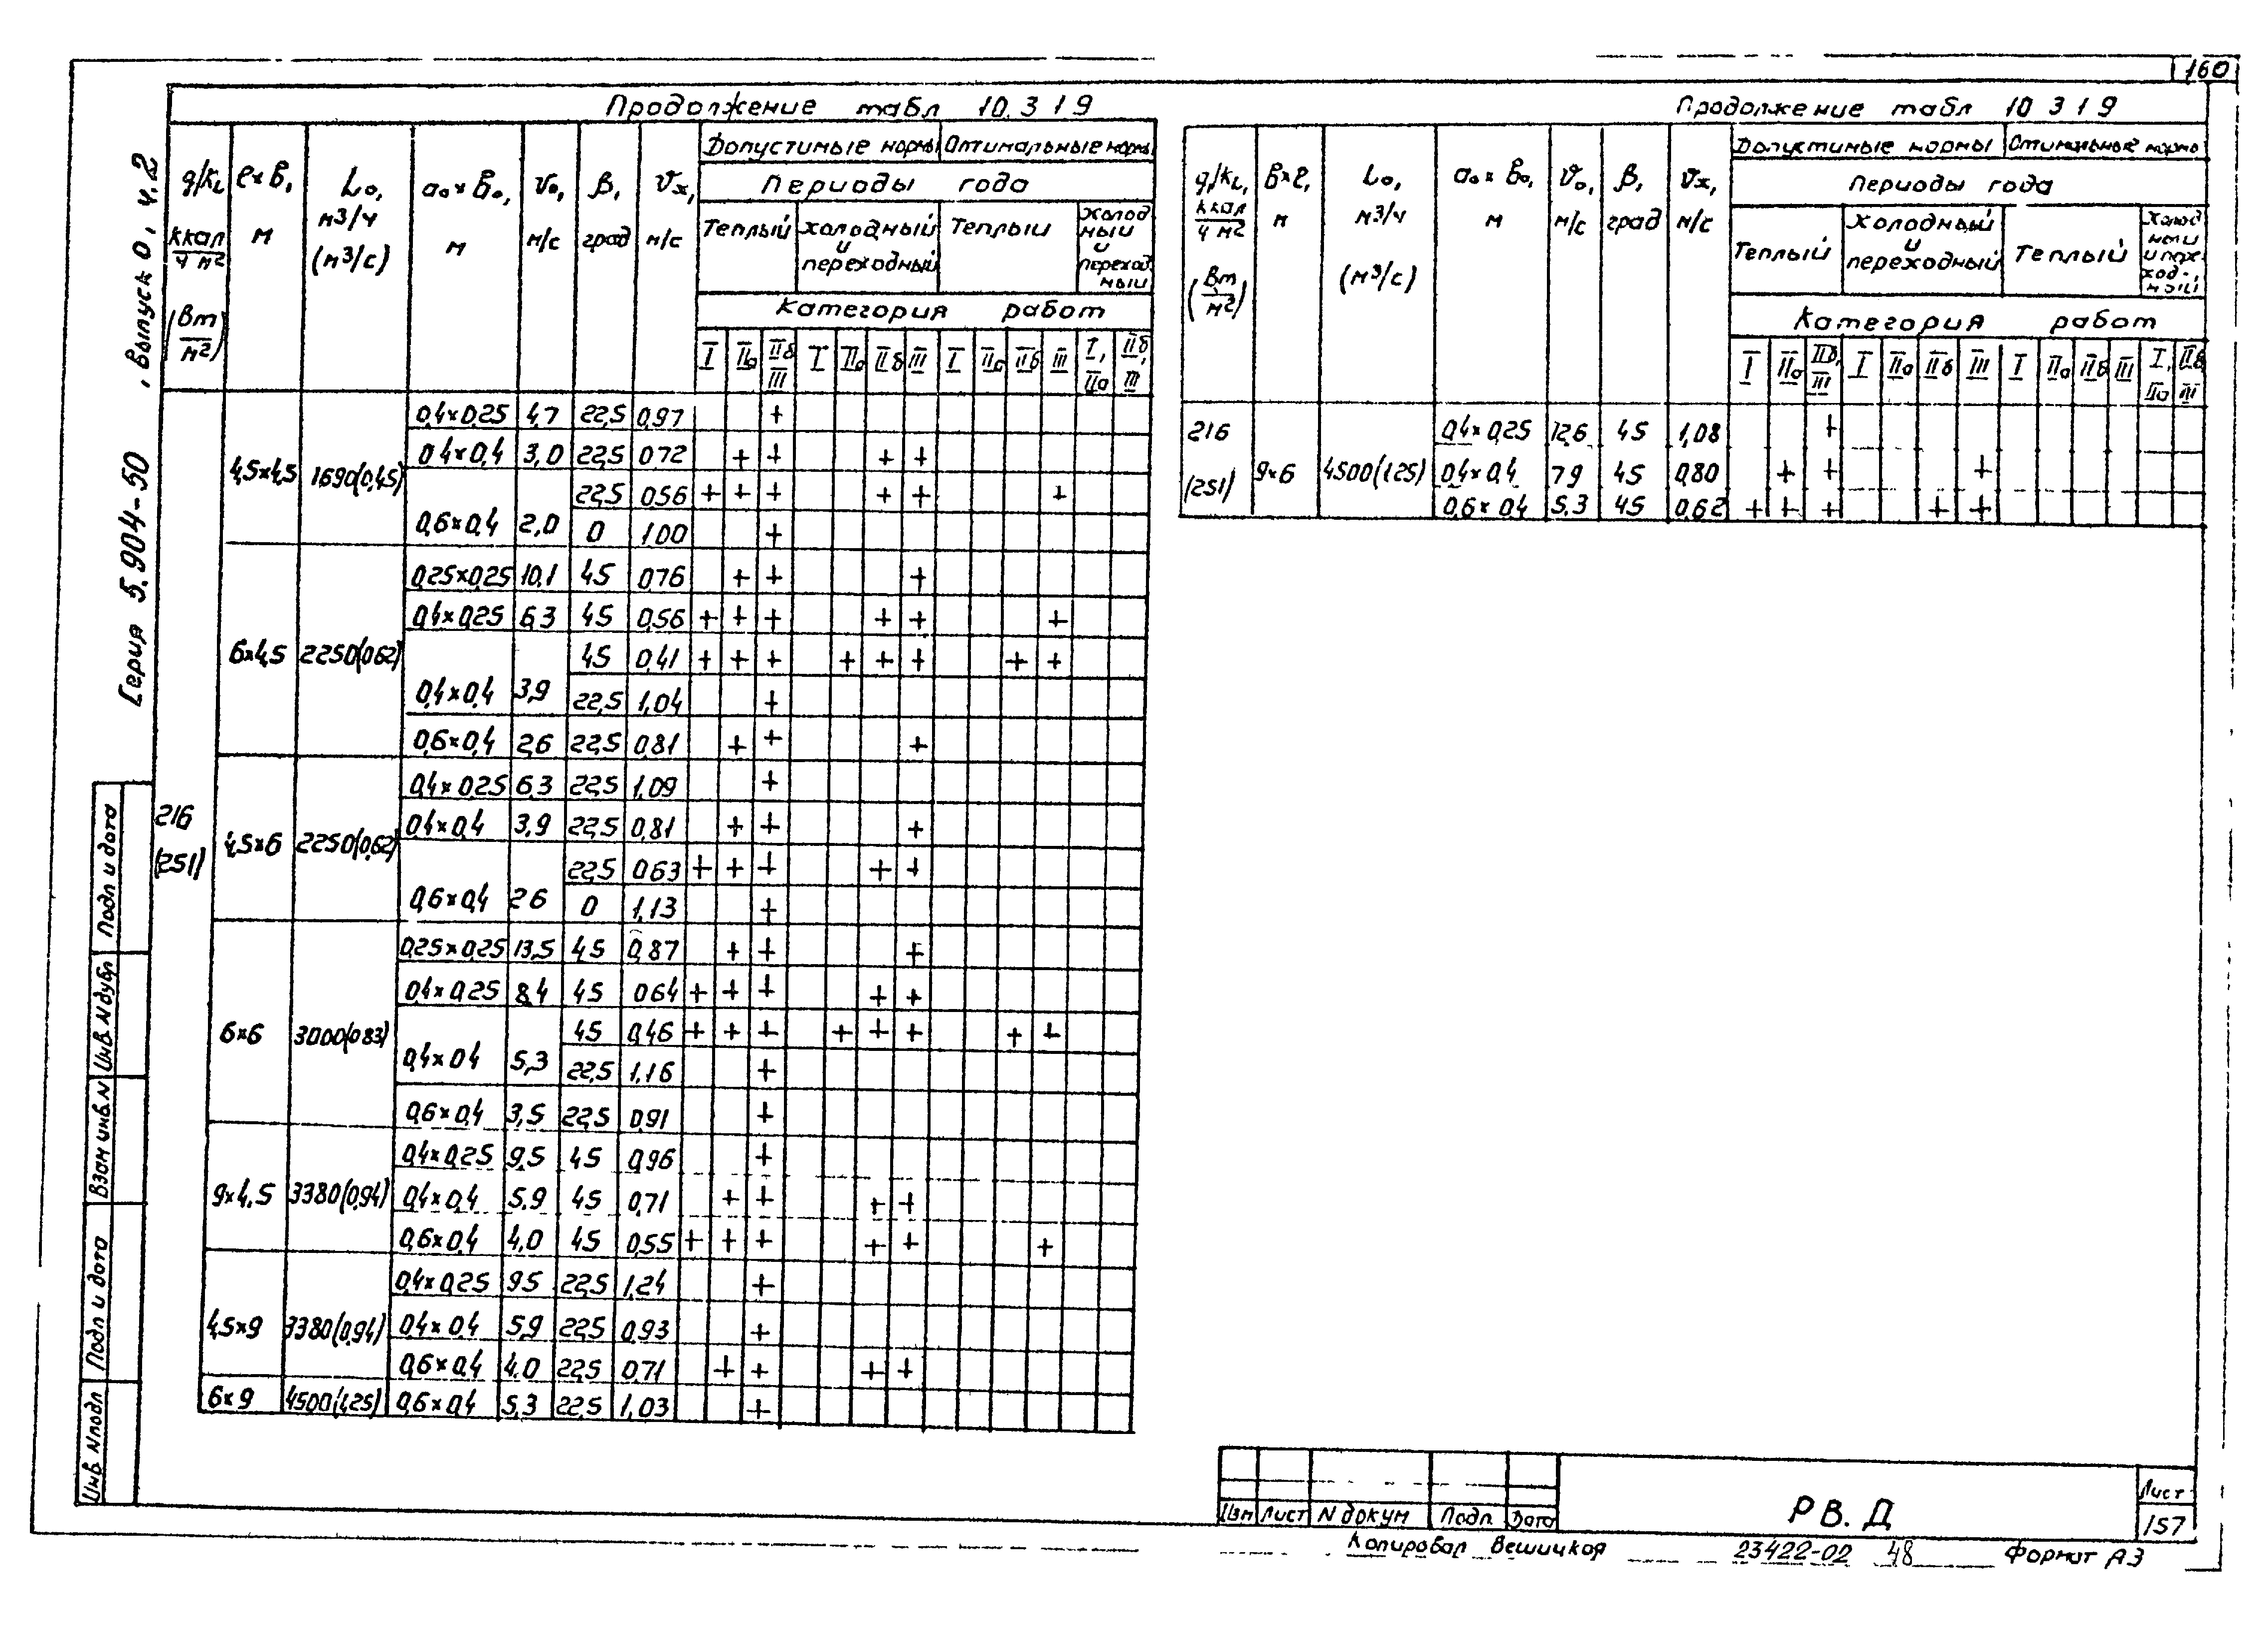 160
Серия 5.904-50 , выпуск 0, ч.2
Продолжение табл 10.3 1 9
g/kL, ккал/ч м² (Вт/м²) | l×b, м | L₀, м³/ч (м³/с) | a₀×b₀, м | v₀, м/с | β, град | vх, м/с | Допустимые нормы | Оптимальные нормы
Периоды года
Теплый | холодный и переходный | Теплый | Холод ный и переход ный
Категория работ
I | IIа | IIб III | I | IIа | IIб | III | I | IIа | IIб | III | I, IIа | IIб, III
216 (251)
4,5×4,5 1690(0,45) 0,4×0,25 4,7 22,5 0,97 +
0,4×0,4 3,0 22,5 0,72 + + + +
0,6×0,4 2,0 22,5 0,56 + + + + + +
0 1,00 +
6×4,5 2250(0,62) 0,25×0,25 10,1 45 0,76 + + +
0,4×0,25 6,3 45 0,56 + + + + + +
0,4×0,4 3,9 45 0,41 + + + + + + + +
22,5 1,04 +
0,6×0,4 2,6 22,5 0,81 + + +
4,5×6 2250(0,62) 0,4×0,25 6,3 22,5 1,09 +
0,4×0,4 3,9 22,5 0,81 + + +
0,6×0,4 2,6 22,5 0,63 + + + + +
0 1,13 +
6×6 3000(0,83) 0,25×0,25 13,5 45 0,87 + + +
0,4×0,25 8,4 45 0,64 + + + + +
0,4×0,4 5,3 45 0,46 + + + + + + + +
22,5 1,16 +
0,6×0,4 3,5 22,5 0,91 +
9×4,5 3380(0,94) 0,4×0,25 9,5 45 0,96 +
0,4×0,4 5,9 45 0,71 + + + +
0,6×0,4 4,0 45 0,55 + + + + + +
4,5×9 3380(0,94) 0,4×0,25 9,5 22,5 1,24 +
0,4×0,4 5,9 22,5 0,93 +
0,6×0,4 4,0 22,5 0,71 + + + +
6×9 4500(1,25) 0,6×0,4 5,3 22,5 1,03 +
Продолжение табл 10 3 1 9
g/kL, ккал/ч м² (Вт/м²) | b×l, м | L₀, м³/ч (м³/с) | a₀×b₀, м | v₀, м/с | β, град | vх, м/с | Допустимые нормы | Оптимальные нормы
Периоды года
Теплый | Холодный и переходный | Теплый | Холод ный и пере ход-, ный
Категория работ
I | IIа | IIб, III | I | IIа | IIб | III | I | IIа | IIб | III | I, IIа | IIб III
216 0,4×0,25 12,6 45 1,08 +
(251) 9×6 4500(1,25) 0,4×0,4 7,9 45 0,80 + + +
0,6×0,4 5,3 45 0,62 + + + + +
Подп и дата
Инв. N дубл
Взам инв. N
Подп и дата
Инв. N подл
Изм Лист N докум Подп Дата
РВ. Д
Лист
157
Копировал Вешицкая
23422-02 48
Формат А3